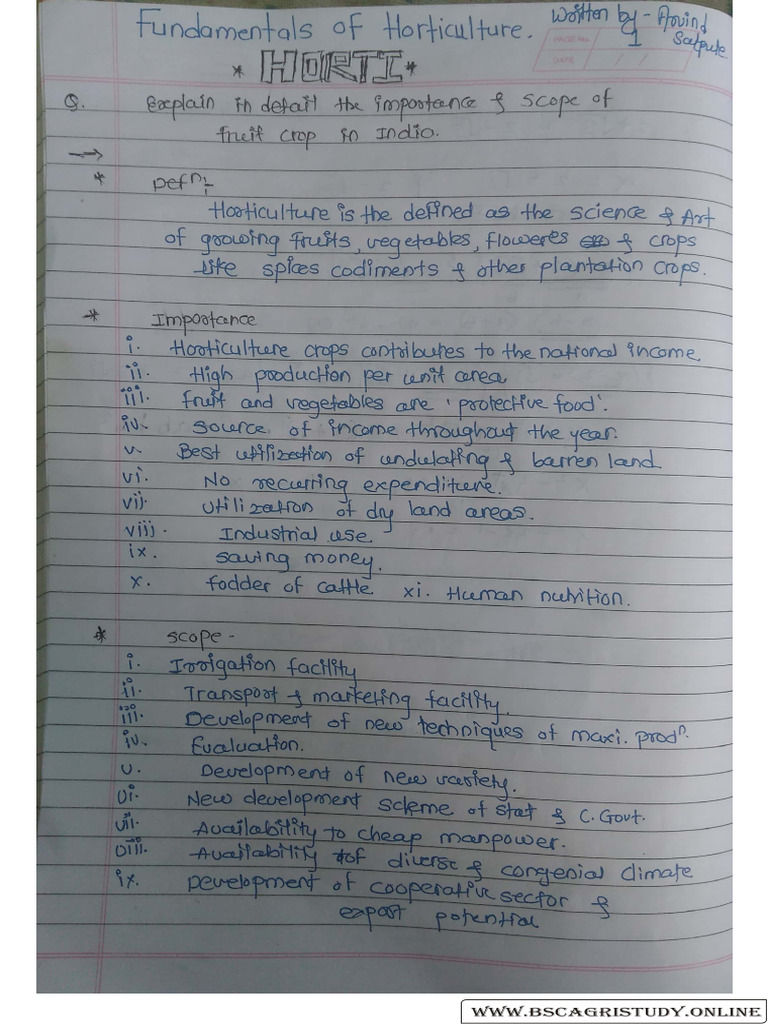 Fundamentals of Horticulture. Written by - Arvind
1 Satpute
PAGE NO.
DATE / /
* HORTI *
Q. Explain in detail the importance & scope of
fruit crop in India.
→
* Defn:-
Horticulture is the defined as the science & Art
of growing fruits, vegetables, floweres & crops
like spices codiments & other plantation crops.
* Importance
i. Horticulture crops contributes to the national income.
ii. High production per unit area
iii. fruit and vegetables are 'protective food'.
iv. source of income throughout the year.
v. Best utilization of undulating & barren land
vi. No recurring expenditure.
vii. utilization of dry land areas.
viii. Industrial use.
ix. saving money.
x. fodder of cattle. xi. Human nutrition.
* scope -
i. Irrigation facility
ii. Transport & marketing facility.
iii. Development of new techniques of maxi. prodn.
iv. Evaluation.
v. Development of new variety.
vi. New development scheme of stat & C. Govt.
vii. Availability to cheap manpower.
viii. Availability of diverse & congenial climate
ix. Development of cooperative sector &
export potential
WWW.BSCAGRISTUDY.ONLINE